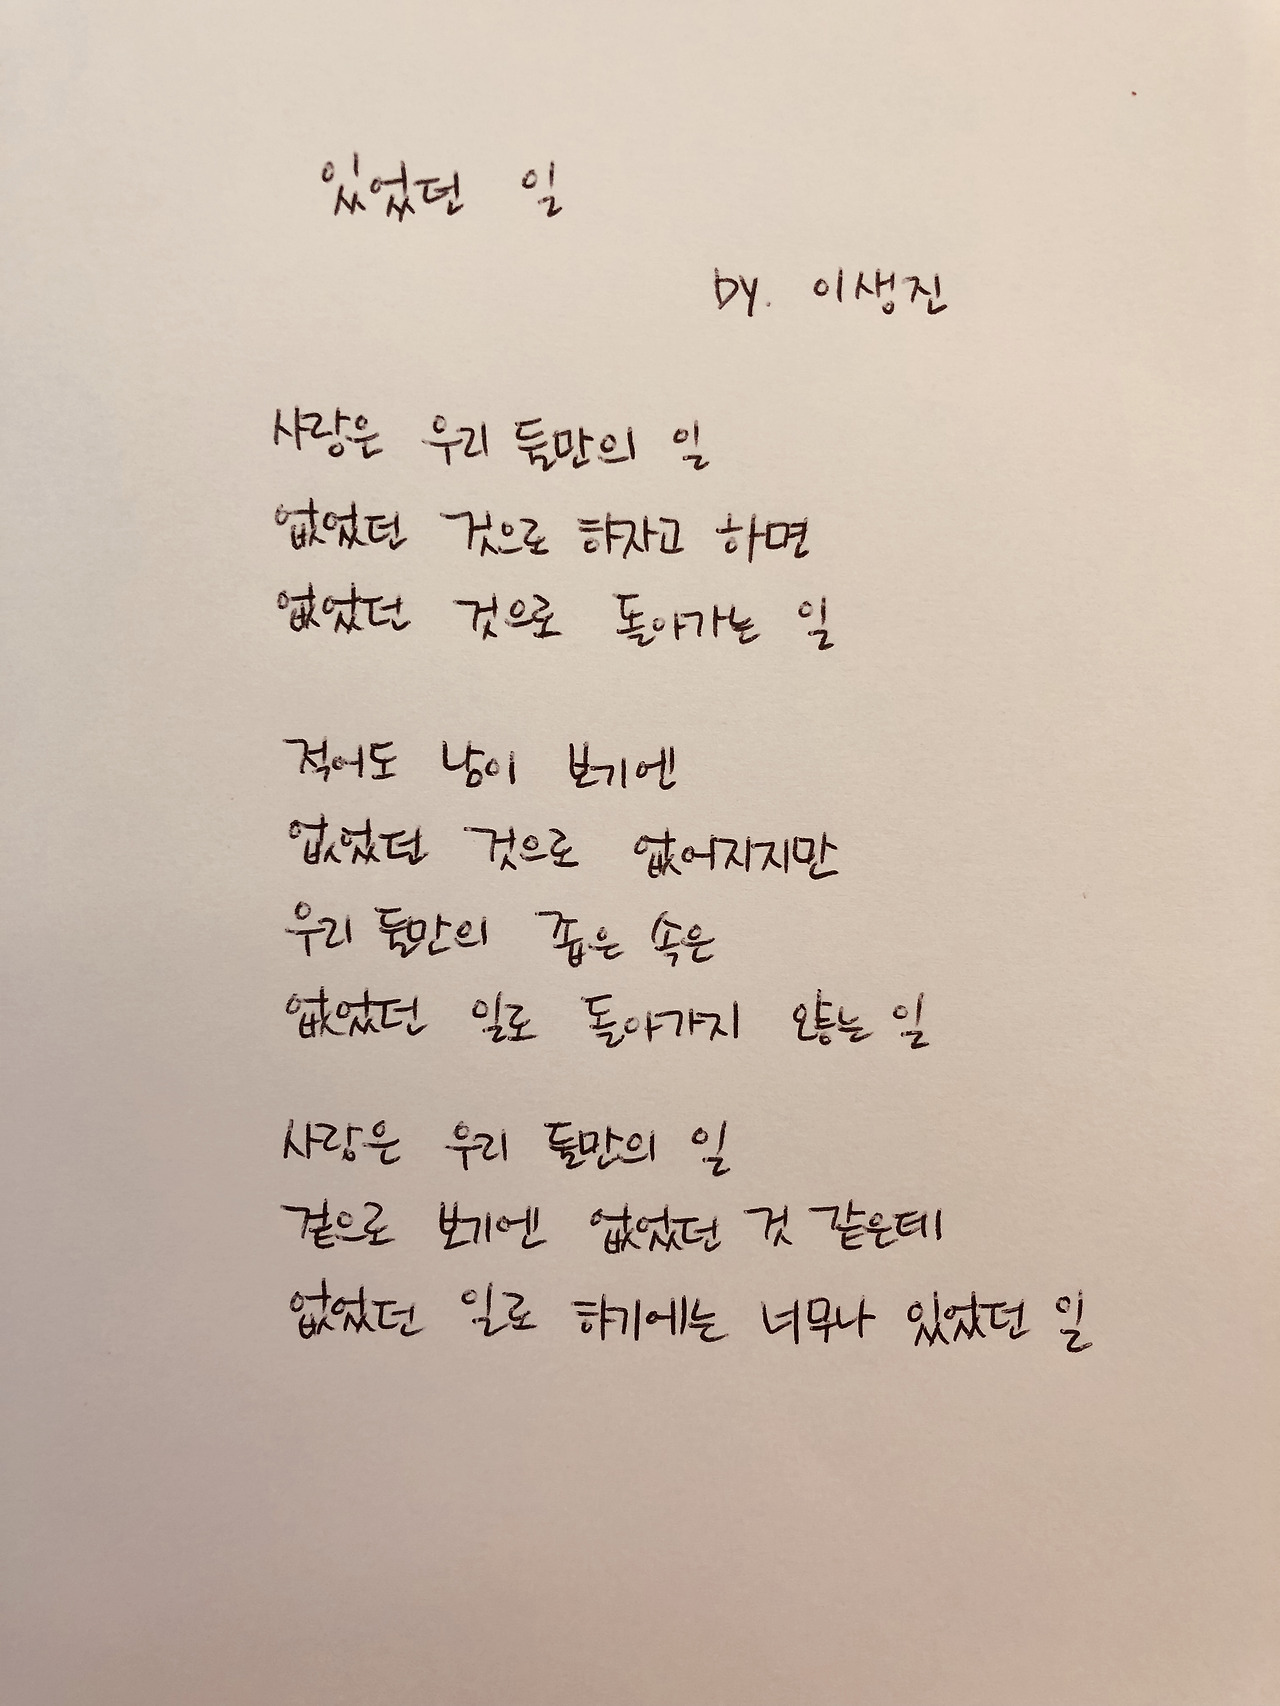 있었던 일
by. 이생진
사랑은 우리 둘만의 일
없었던 것으로 하자고 하면
없었던 것으로 돌아가는 일
적어도 남이 보기엔
없었던 것으로 없어지지만
우리 둘만의 좁은 속은
없었던 일로 돌아가지 않는 일
사랑은 우리 둘만의 일
겉으로 보기엔 없었던 것 같은데
없었던 일로 하기에는 너무나 있었던 일